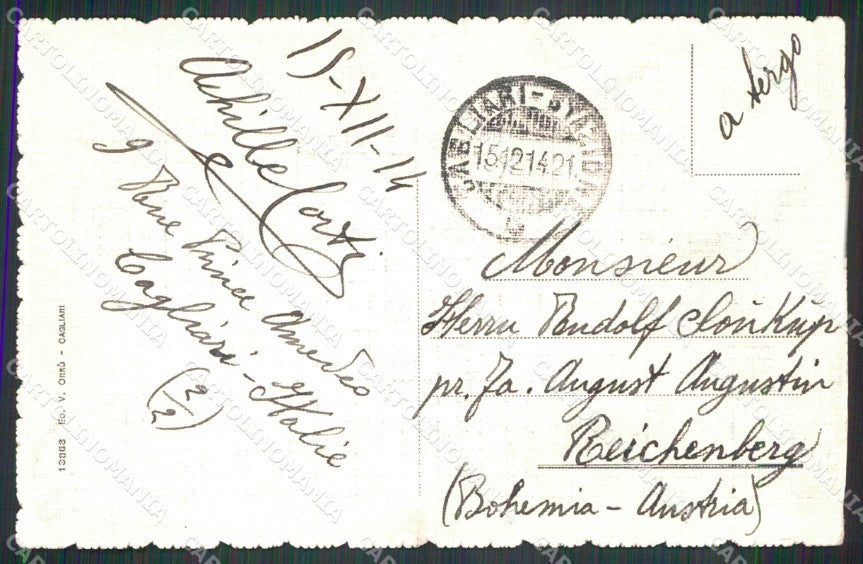 15-XII-14
Achille Corti
9 Rue Prince Amedeo
Cagliari - Italie
(2/2)
13863 ED. V. ORRÙ - CAGLIARI
CAGLIARI-STAZIONE
15.12.14.21
a tergo
Monsieur
Herrn Rudolf
pr. Fa. August Augustin
Reichenberg
(Bohemia - Austria)
CARTOLINOMANIA